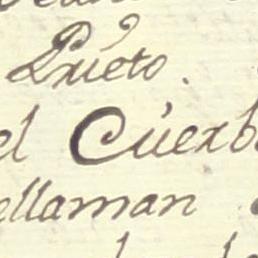 Prieto.
el Cúerb
ellaman